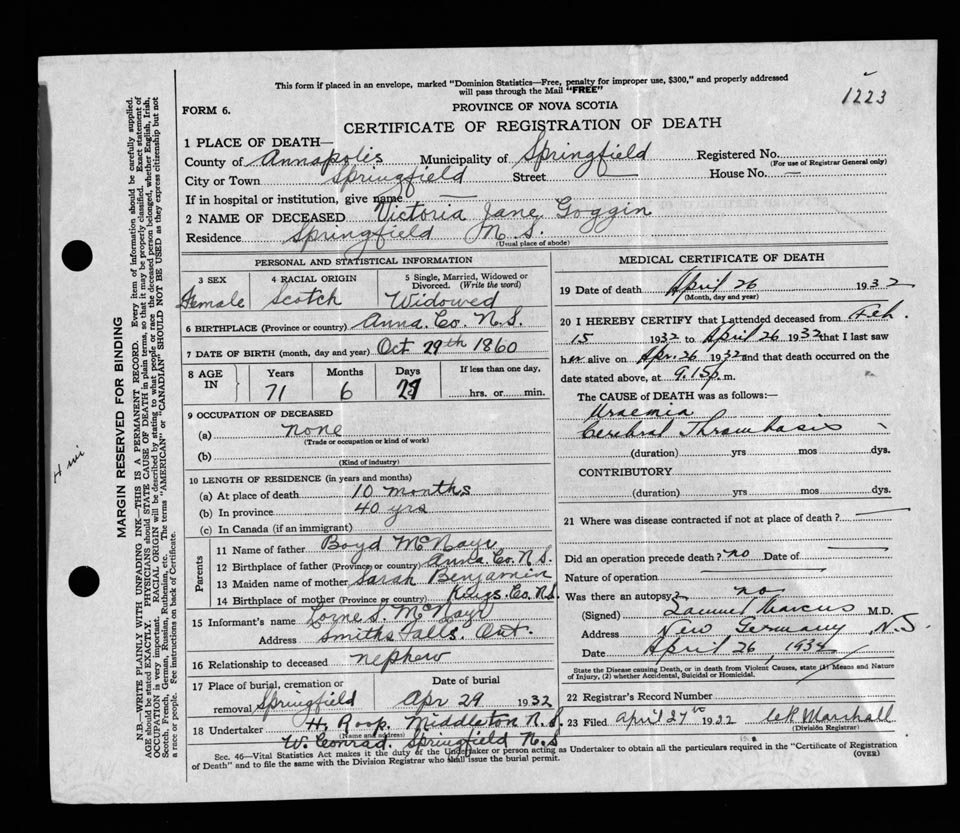 This form if placed in an envelope, marked "Dominion Statistics—Free, penalty for improper use, $300," and properly addressed
will pass through the Mail "FREE"
1223
FORM 6.
PROVINCE OF NOVA SCOTIA
CERTIFICATE OF REGISTRATION OF DEATH
1 PLACE OF DEATH—
County of Annapolis Municipality of Springfield Registered No.
(For use of Registrar General only)
City or Town Springfield Street — House No. —
If in hospital or institution, give name —
2 NAME OF DECEASED Victoria Jane Goggin
Residence Springfield N.S.
(Usual place of abode)
PERSONAL AND STATISTICAL INFORMATION
3 SEX Female
4 RACIAL ORIGIN Scotch
5 Single, Married, Widowed or Divorced. (Write the word) Widowed
6 BIRTHPLACE (Province or country) Anna. Co. N.S.
7 DATE OF BIRTH (month, day and year) Oct 29th 1860
8 AGE IN
Years 71
Months 6
Days
If less than one day,
hrs. or min.
9 OCCUPATION OF DECEASED
(a) none
(Trade or occupation or kind of work)
(b)
(Kind of industry)
10 LENGTH OF RESIDENCE (in years and months)
(a) At place of death 10 months
(b) In province 40 yrs
(c) In Canada (if an immigrant)
Parents
11 Name of father Boyd McNayr
12 Birthplace of father (Province or country) Anna. Co. N.S.
13 Maiden name of mother Sarah Benjamin
14 Birthplace of mother (Province or country) Kings. Co. N.S.
15 Informant's name Lorne S. McNayr
Address Smiths Falls. Ont.
16 Relationship to deceased nephew
17 Place of burial, cremation or removal Springfield
Date of burial Apr 29 1932
18 Undertaker H. Roop. Middleton N.S.
(Name and address)
W. Conrad. Springfield N.S
MEDICAL CERTIFICATE OF DEATH
19 Date of death April 26 1932
(Month, day and year)
20 I HEREBY CERTIFY that I attended deceased from Feb.
15 1932 to April 26 1932 that I last saw
her alive on Apr. 26 1932 and that death occurred on the
date stated above, at 9.15 p.m.
The CAUSE of DEATH was as follows:—
Uraemia
Cerebral Thrombosis
(duration) yrs mos dys.
CONTRIBUTORY
(duration) yrs mos dys.
21 Where was disease contracted if not at place of death? —
Did an operation precede death? no Date of —
Nature of operation —
Was there an autopsy? no
(Signed) Samuel Marcus M.D.
Address New Germany N.S.
Date April 26 1932
State the Disease causing Death, or in death from Violent Causes, state (1) Means and Nature
of Injury, (2) whether Accidental, Suicidal or Homicidal.
22 Registrar's Record Number
23 Filed April 27th 1932 Marshall
(Division Registrar)
Sec. 46—Vital Statistics Act makes it the duty of the Undertaker or person acting as Undertaker to obtain all the particulars required in the "Certificate of Registration
of Death" and to file the same with the Division Registrar who shall issue the burial permit.
(OVER)
MARGIN RESERVED FOR BINDING
N.B.—WRITE PLAINLY WITH UNFADING INK—THIS IS A PERMANENT RECORD. Every item of information should be carefully supplied.
AGE should be stated EXACTLY. PHYSICIANS should STATE CAUSE OF DEATH in plain terms, so that it may be properly classified. Exact statement of
OCCUPATION is very important. RACIAL ORIGIN will be described by stating to what people or race the deceased person belonged, whether English, Irish,
Scotch, French, German, Russian, Ruthenian, etc. The terms "AMERICAN" or "CANADIAN" SHOULD NOT BE USED as they express citizenship but not
a race or people. See instructions on back of Certificate.